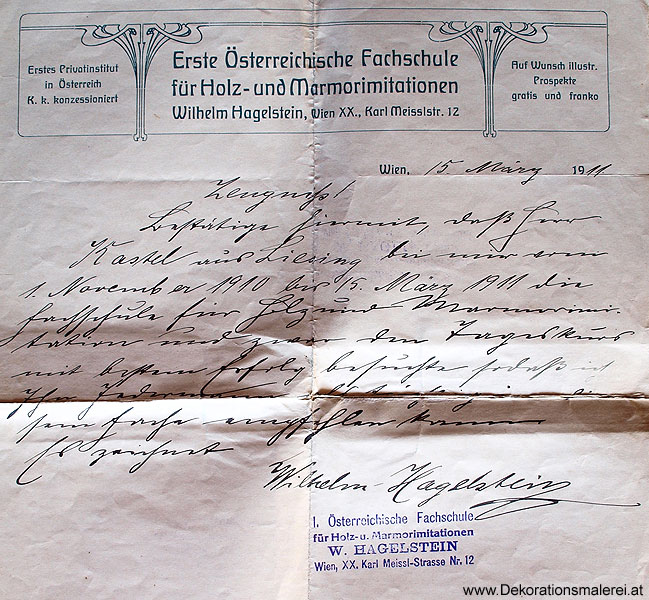 Erstes Privatinstitut
in Österreich
K. k. konzessioniert
Erste Österreichische Fachschule
für Holz- und Marmorimitationen
Wilhelm Hagelstein, Wien XX., Karl Meisslstr. 12
Auf Wunsch illustr.
Prospekte
gratis und franko
Wien, 15 März 1911
Zeugniß!
Bestätige hiermit, daß Herr
Kastel aus Liesing bei mir vom
1. November 1910 bis 15. März 1911 die
Fachschule für Holz und Marmorimi-
tation und zwar den Tageskurs
mit bestem Erfolg besuchte sodaß ich
Ihn Jedermann in die-
sem Fache empfehlen kann
Es zeichnet
Wilhelm Hagelstein
I. Österreichische Fachschule
für Holz- u. Marmorimitationen
W. HAGELSTEIN
Wien, XX. Karl Meissl-Strasse Nr. 12
www.Dekorationsmalerei.at